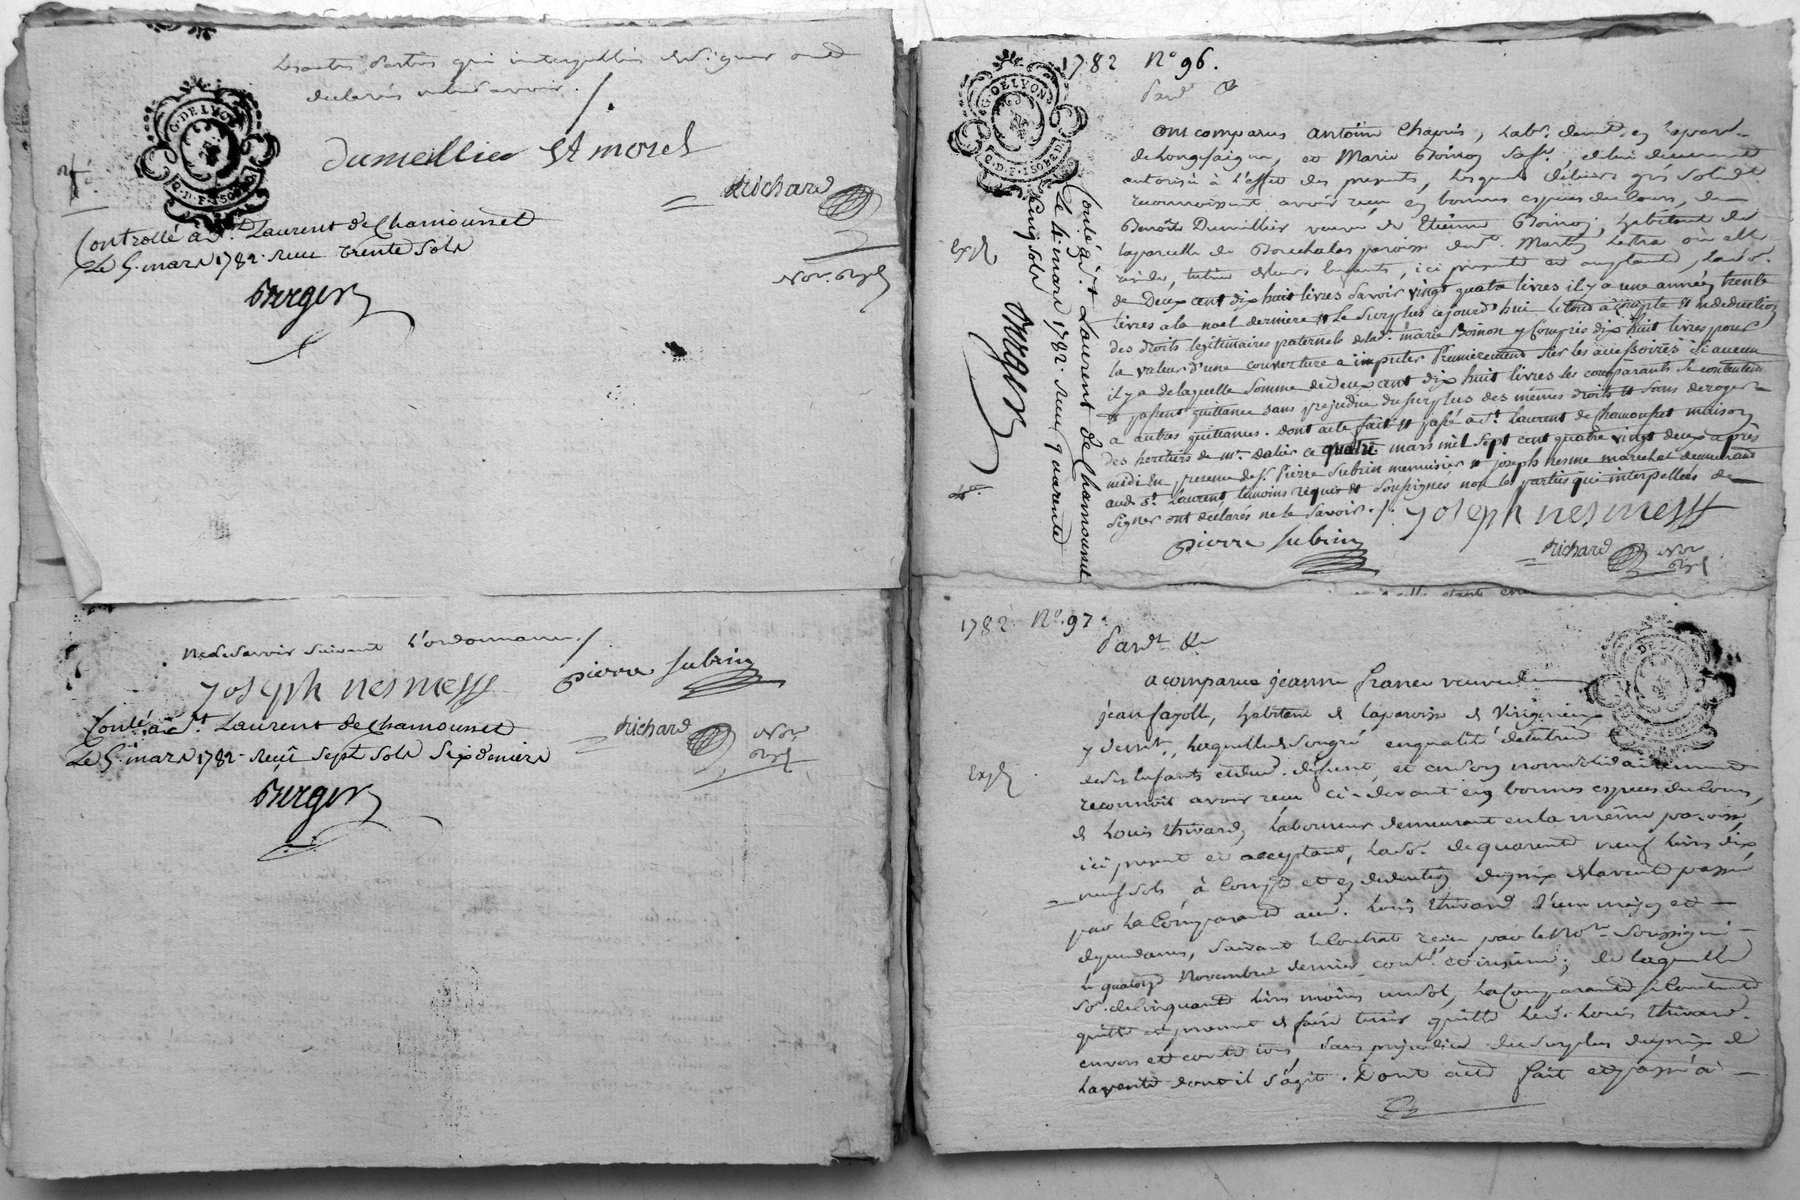 Les autres parties qui interpellées de signer ont
declarés ne le savoir ./.
Dumeillier St morel
Richard
Nore. Royl
G. DE LYON
G.D.F. 1S.6D.
Controllé a St. Laurent de Chamousset
Le 5. mars 1782. reçu trente sols
Berger
ne le savoir suivant l'ordonnance ./
Joseph nesmess
pierre subrin
Conlé. à St. Laurent de Chamousset
Le 5. mars 1782. reçu sept sols six deniers
Richard
Nore
Royl
Berger
1782 No 96.
Pardt &
G. DE LYON
G.D.F. 1S.6D.
Ont comparus antoine Chapuis, labr. demt. en la par.
de Longessaigne, et Marie Boinon sa fe., de lui duement
autorisée à l'effet des presents, lesquels de leurs grés solidt
reconnoissent avoir reçu en bonnes especes du cours, de
Benoite Dumillier veuve de Etienne Boinon, habitant de
la parcelle de Bouchalas paroisse de St. Martin Lestra où elle
reside, tutrice de leurs enfants, ici presente et acceptante, la so.
de Deux cent dix huit livres savoir vingt quatre livres il y a une année trente
livres a la noel derniere et le surplus cejourd'hui le tout a compte et en deduction
des droits legitimaires paternels de lad. marie Boinon y compris dix huit livres pour
la valeur d'une couverture a imputer premierement sur les accessoires si aucun
il y a de laquelle somme de Deux cent dix huit livres les comparants se contentent
et passent quittance sans prejudice du surplus des mêmes droits et sans deroger
a autres quittances. dont acte fait et passé a St. Laurent de Chamousset maison
des heritiers de Mr. Dalier ce quatre mars mil sept cent quatre vingt deux après
midi en presence de Sr. Pierre Subrin menuisier et joseph nesme marechal demeurant
aud. St. Laurent temoins requis et soussignés non les parties qui interpellées de
signer ont declarés ne le savoir ./.
Joseph nesmess
pierre subrin
Richard
Nore
Royl
Expé
Conlé. à St. Laurent de Chamousset
Le 4 mars 1782. reçu quarente
cinq sols
Berger
1782 No. 97.
Pardt &
G. DE LYON
a comparue jeanne france veuve de
jean fayolle, habitant de la paroisse de Virigneux
y demt., laquelle de son gré en qualité de tutrice
de ses enfants et dud. defunt, et en son nom solidairement
reconnoit avoir reçu ci-devant en bonnes especes du cours,
de Louis thivard, laboureur demeurant en la même paroisse,
ici present et acceptant, la so. de quarente neuf livres dix
neuf sols à compte et en deduction du prix de la vente passée
par la Comparante aud. Louis thivard d'une maison et
dependances, suivant le Contrat reçu par le Nore. soussigné
le quatorze Novembre dernier contlé. et insinué; de laquelle
so. de cinquante livres moins un sol, la Comparante se contente
quitte et promet de faire tenir quitte led. Louis thivard
envers et contre tous, sans prejudice du surplus du prix de
la vente dont il s'agit. Dont acte fait et passé à
Expé